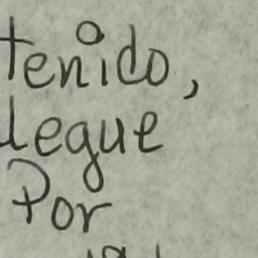 tenido,
legue
Por